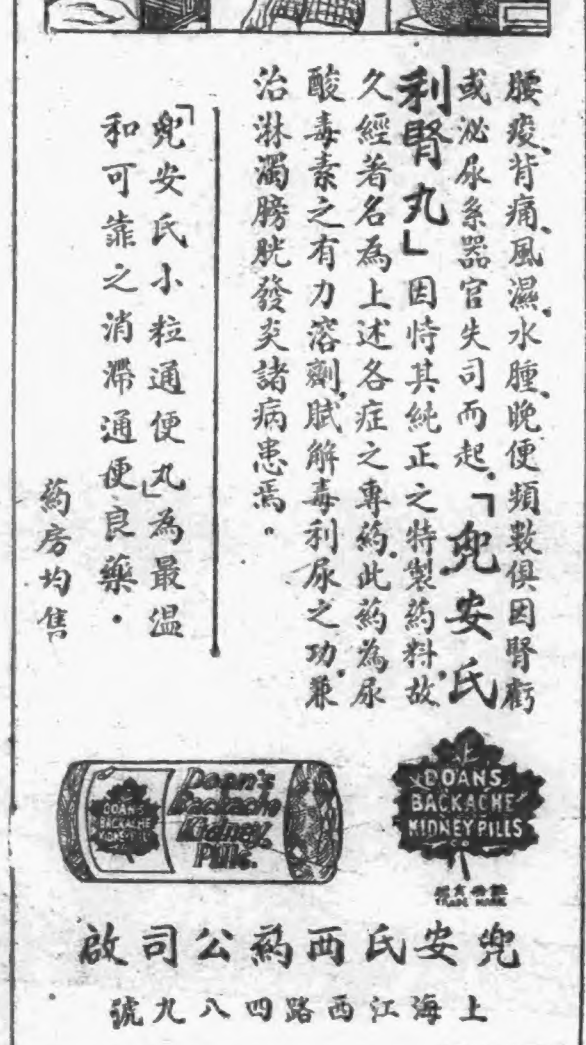 腰痠、背痛、風濕、水腫、晚便頻數俱因腎虧
或泌尿系器官失司而起。「兜安氏
利腎丸」因恃其純正之特製药料、故
久經著名為上述各症之專药、此药為尿
酸毒素之有力溶劑、賦解毒利尿之功、兼
治淋濁膀胱發炎諸病患焉。
「兜安氏小粒通便丸」為最溫
和可靠之消滯通便良藥。
药房均售
DOAN'S
BACKACHE
KIDNEY PILLS
TRADE MARK
DOAN'S
BACKACHE
KIDNEY PILLS
Doan's
Backache
Kidney
Pills.
兜安氏西药公司啟
上海江西路四八九號